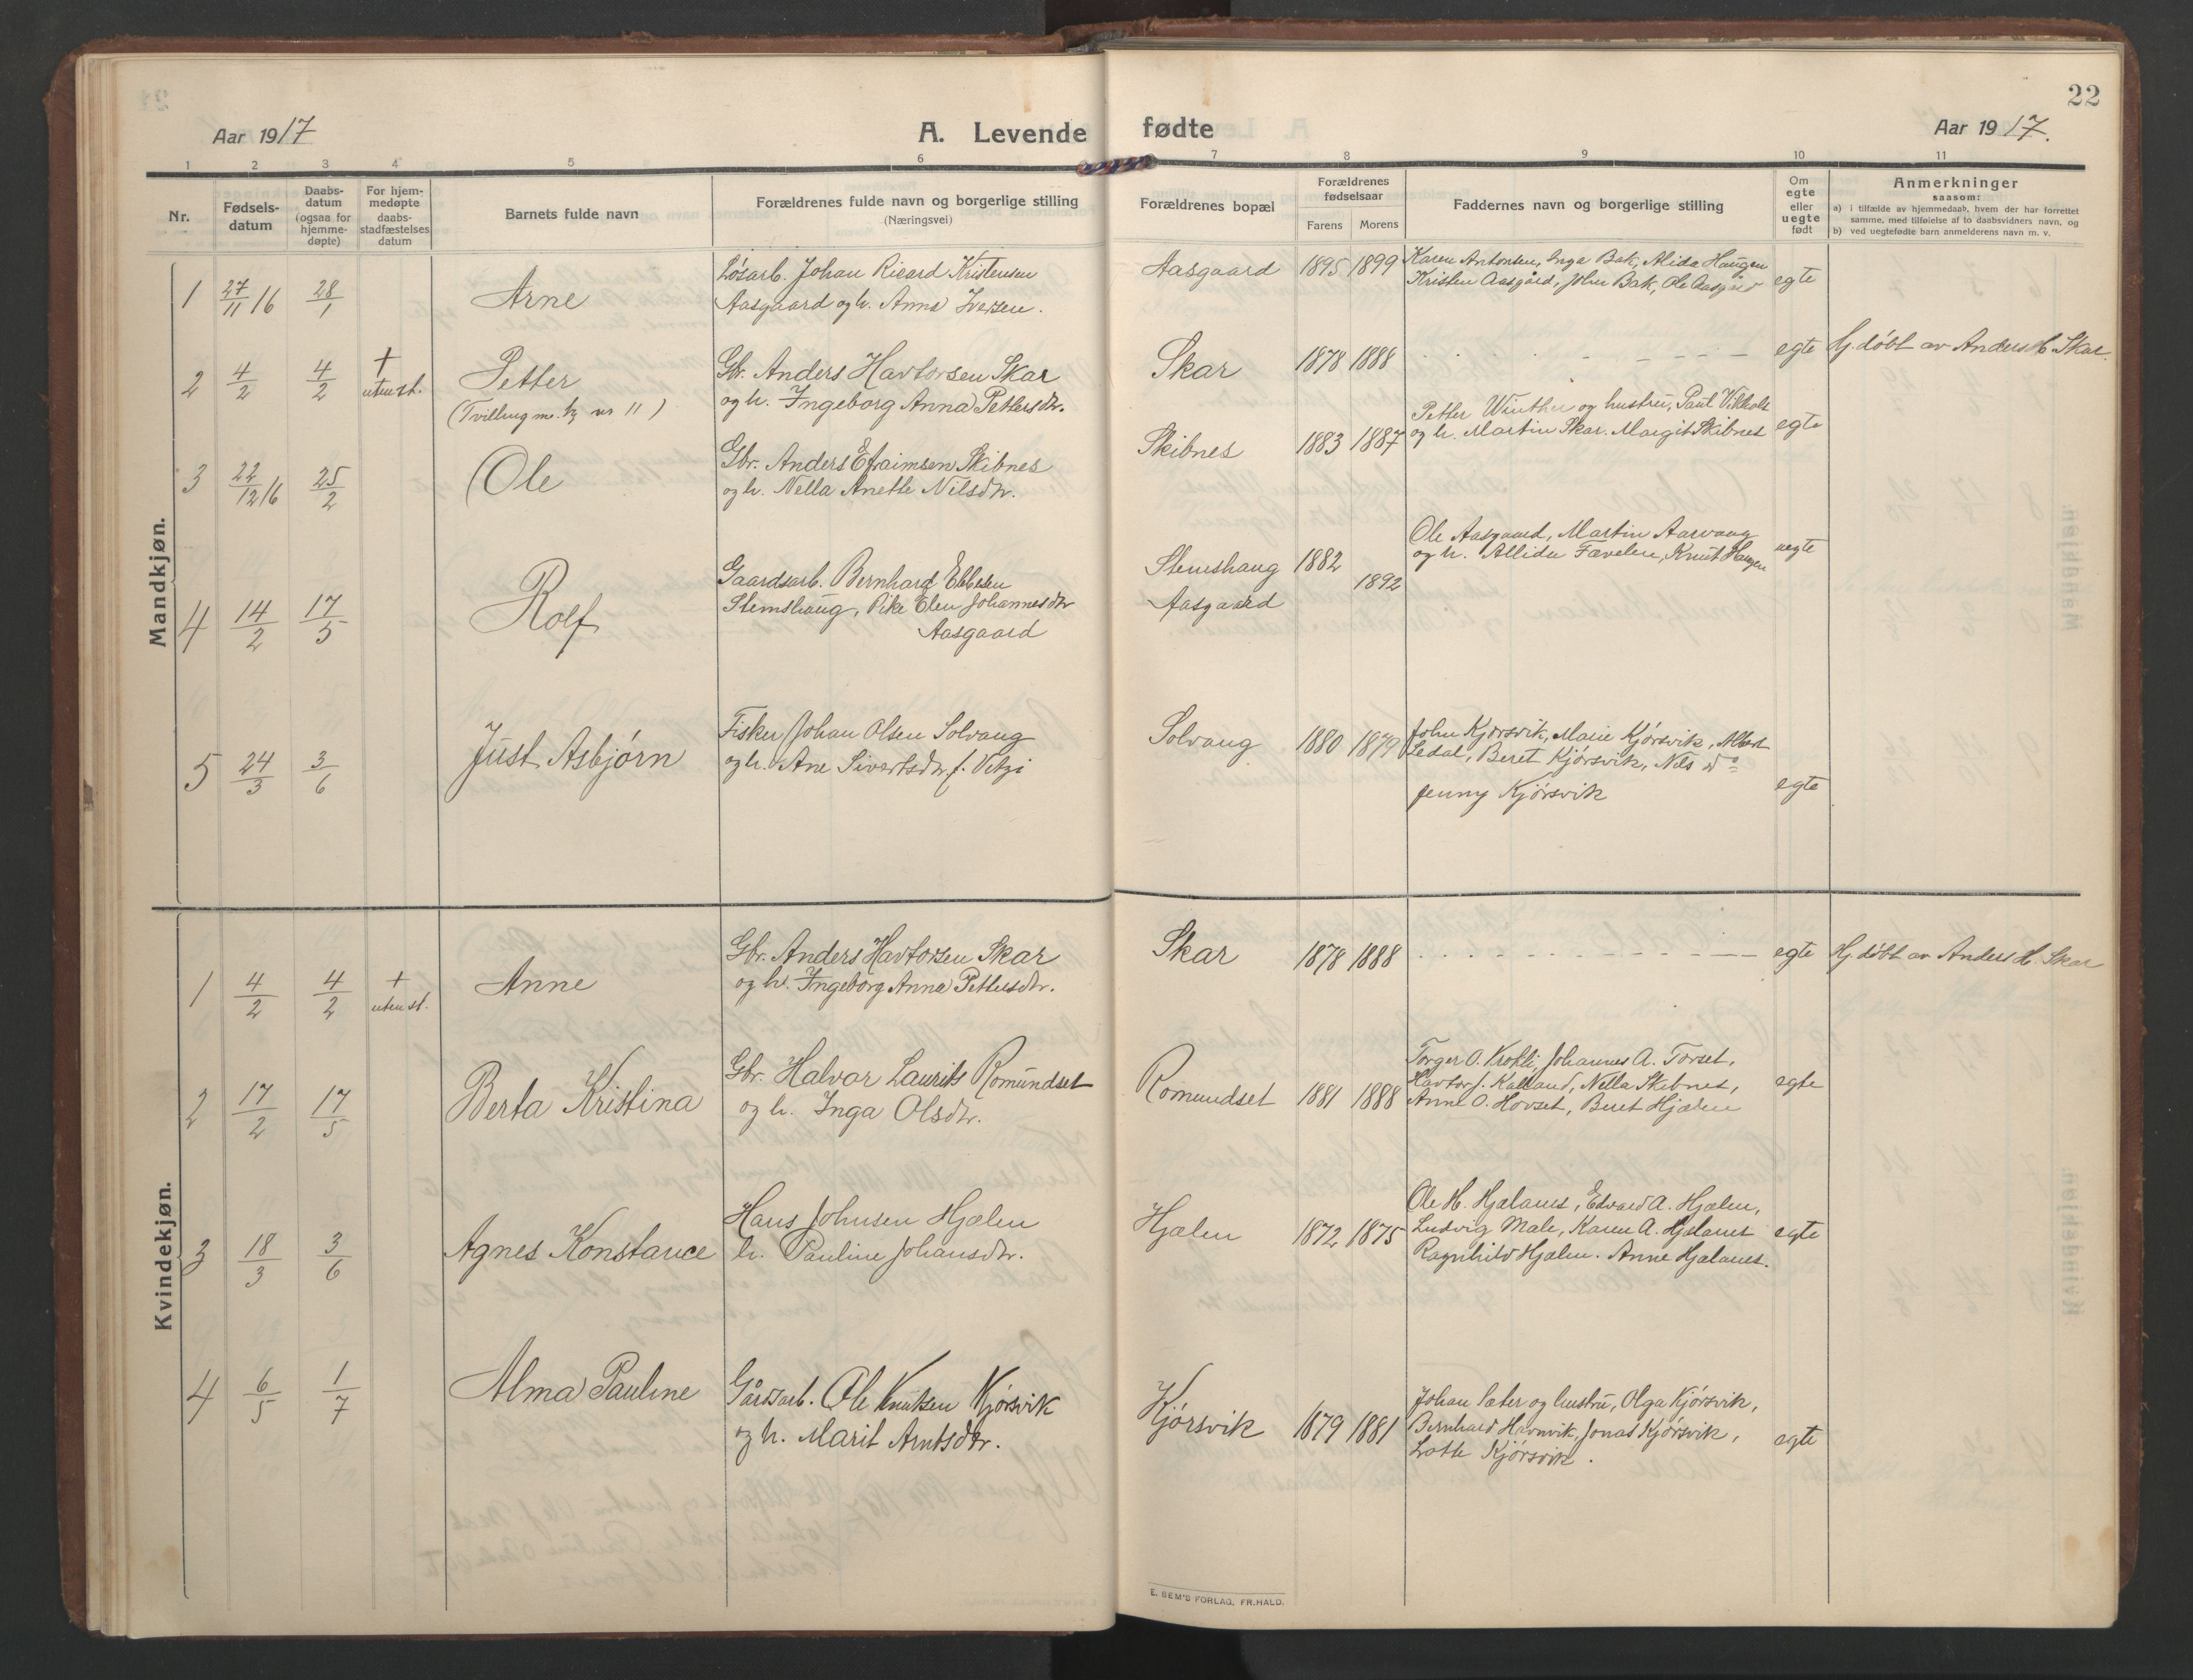 22
Aar 1917
A. Levende fødte
Aar 1917.
1 2 3 4 5 6 7 8 9 10 11
Nr.
Fødsels-
datum
Daabs-
datum
(ogsaa for
hjemme-
døpte)
For hjem-
medøpte
daabs-
stadfæstelses
datum
Barnets fulde navn
Forældrenes fulde navn og borgerlige stilling
(Næringsvei)
Forældrenes bopæl
Forældrenes
fødselsaar
Farens Morens
Faddernes navn og borgerlige stilling
Om
egte
eller
uegte
født
Anmerkninger
saasom:
a) i tilfælde av hjemmedaab, hvem der har forrettet
samme, med tilføielse af to daabsvidners navn, og
b) ved uegtefødte barn anmelderens navn m. v.
Mandkjøn.
1 27/11 16 28/1 Arne
Løsarb. Johan Ricard Kristensen
Aasgaard og h. Anna Iversen.
Aasgaard 1895 1899
Karen Antonsen, Inga Bak, Alida Haugen
Kristen Aasgård, John Bak, Ole Aasgård
egte
2 4/2 4/2 + uten st. Petter
(Tvilling m. kj nr 11)
Gbr. Anders Havtorsen Skar
og h. Ingeborg Anna Pettersdtr.
Skar 1878 1888 egte Hj. döbt av Anders H. Skar.
3 22/12 16 25/2 Ole
Gbr. Anders Efraimsen Skibnes
og h. Nella Anette Nilsdtr.
Skibnes 1883 1887
Petter Winther og hustru, Paul Vikholt
og h. Martin Skar. Margit Skibnes
egte
4 14/2 17/5 Rolf
Gaardsarb. Bernhard Ebbesen
Stemshaug, Pike Elen Johannesdtr
Aasgaard
Stemshaug 1882
Aasgaard 1892
Ole Aasgaard, Martin Aasvang
og h. Allida Favelen, Knut Haugen
uegte
5 24/3 3/6 Just Asbjørn
Fisker Johan Olsen Solvang
og h. Ane Sivertsdtr f.
Solvang 1880 1879
John Kjørsvik, Marie Kjørsvik, Albert
Ledal, Beret Kjørsvik, Nils do
Jenny Kjørsvik
egte
Kvindekjøn.
1 4/2 4/2 + uten st. Anne
Gbr. Anders Havtorsen Skar
og h. Ingeborg Anna Pettersdtr.
Skar 1878 1888 egte Hj. döbt av Anders H. Skar
2 17/2 17/5 Berta Kristina
Gbr. Halvor Laurits Romundset
og h. Inga Olsdtr.
Romundset 1881 1888
Torger O. Krokli, Johannes A. Torset,
Havtor J. Kalland, Nella Skibnes,
Anne O. Hovset, Beret Hjælen
egte
3 18/3 3/6 Agnes Konstance
Hans Johnsen Hjælen
h. Pauline Johansdtr.
Hjælen 1872 1875
Ole H. Hjelanes, Edvard A. Hjælen,
Ludvig Male, Karen A. Hjelanes
Ragnhild Hjælen. Anne Hjælanes.
egte
4 6/5 1/7 Alma Pauline
Gårdsarb. Ole Knutsen Kjørsvik
og h. Marit Arntsdtr.
Kjørsvik 1879 1881
Johan Sæter og hustru, Olga Kjørsvik,
Bernhard Havnvik, Jonas Kjørsvik,
Lotte Kjørsvik.
egte
E. SEM'S FORLAG, FR.HALD.